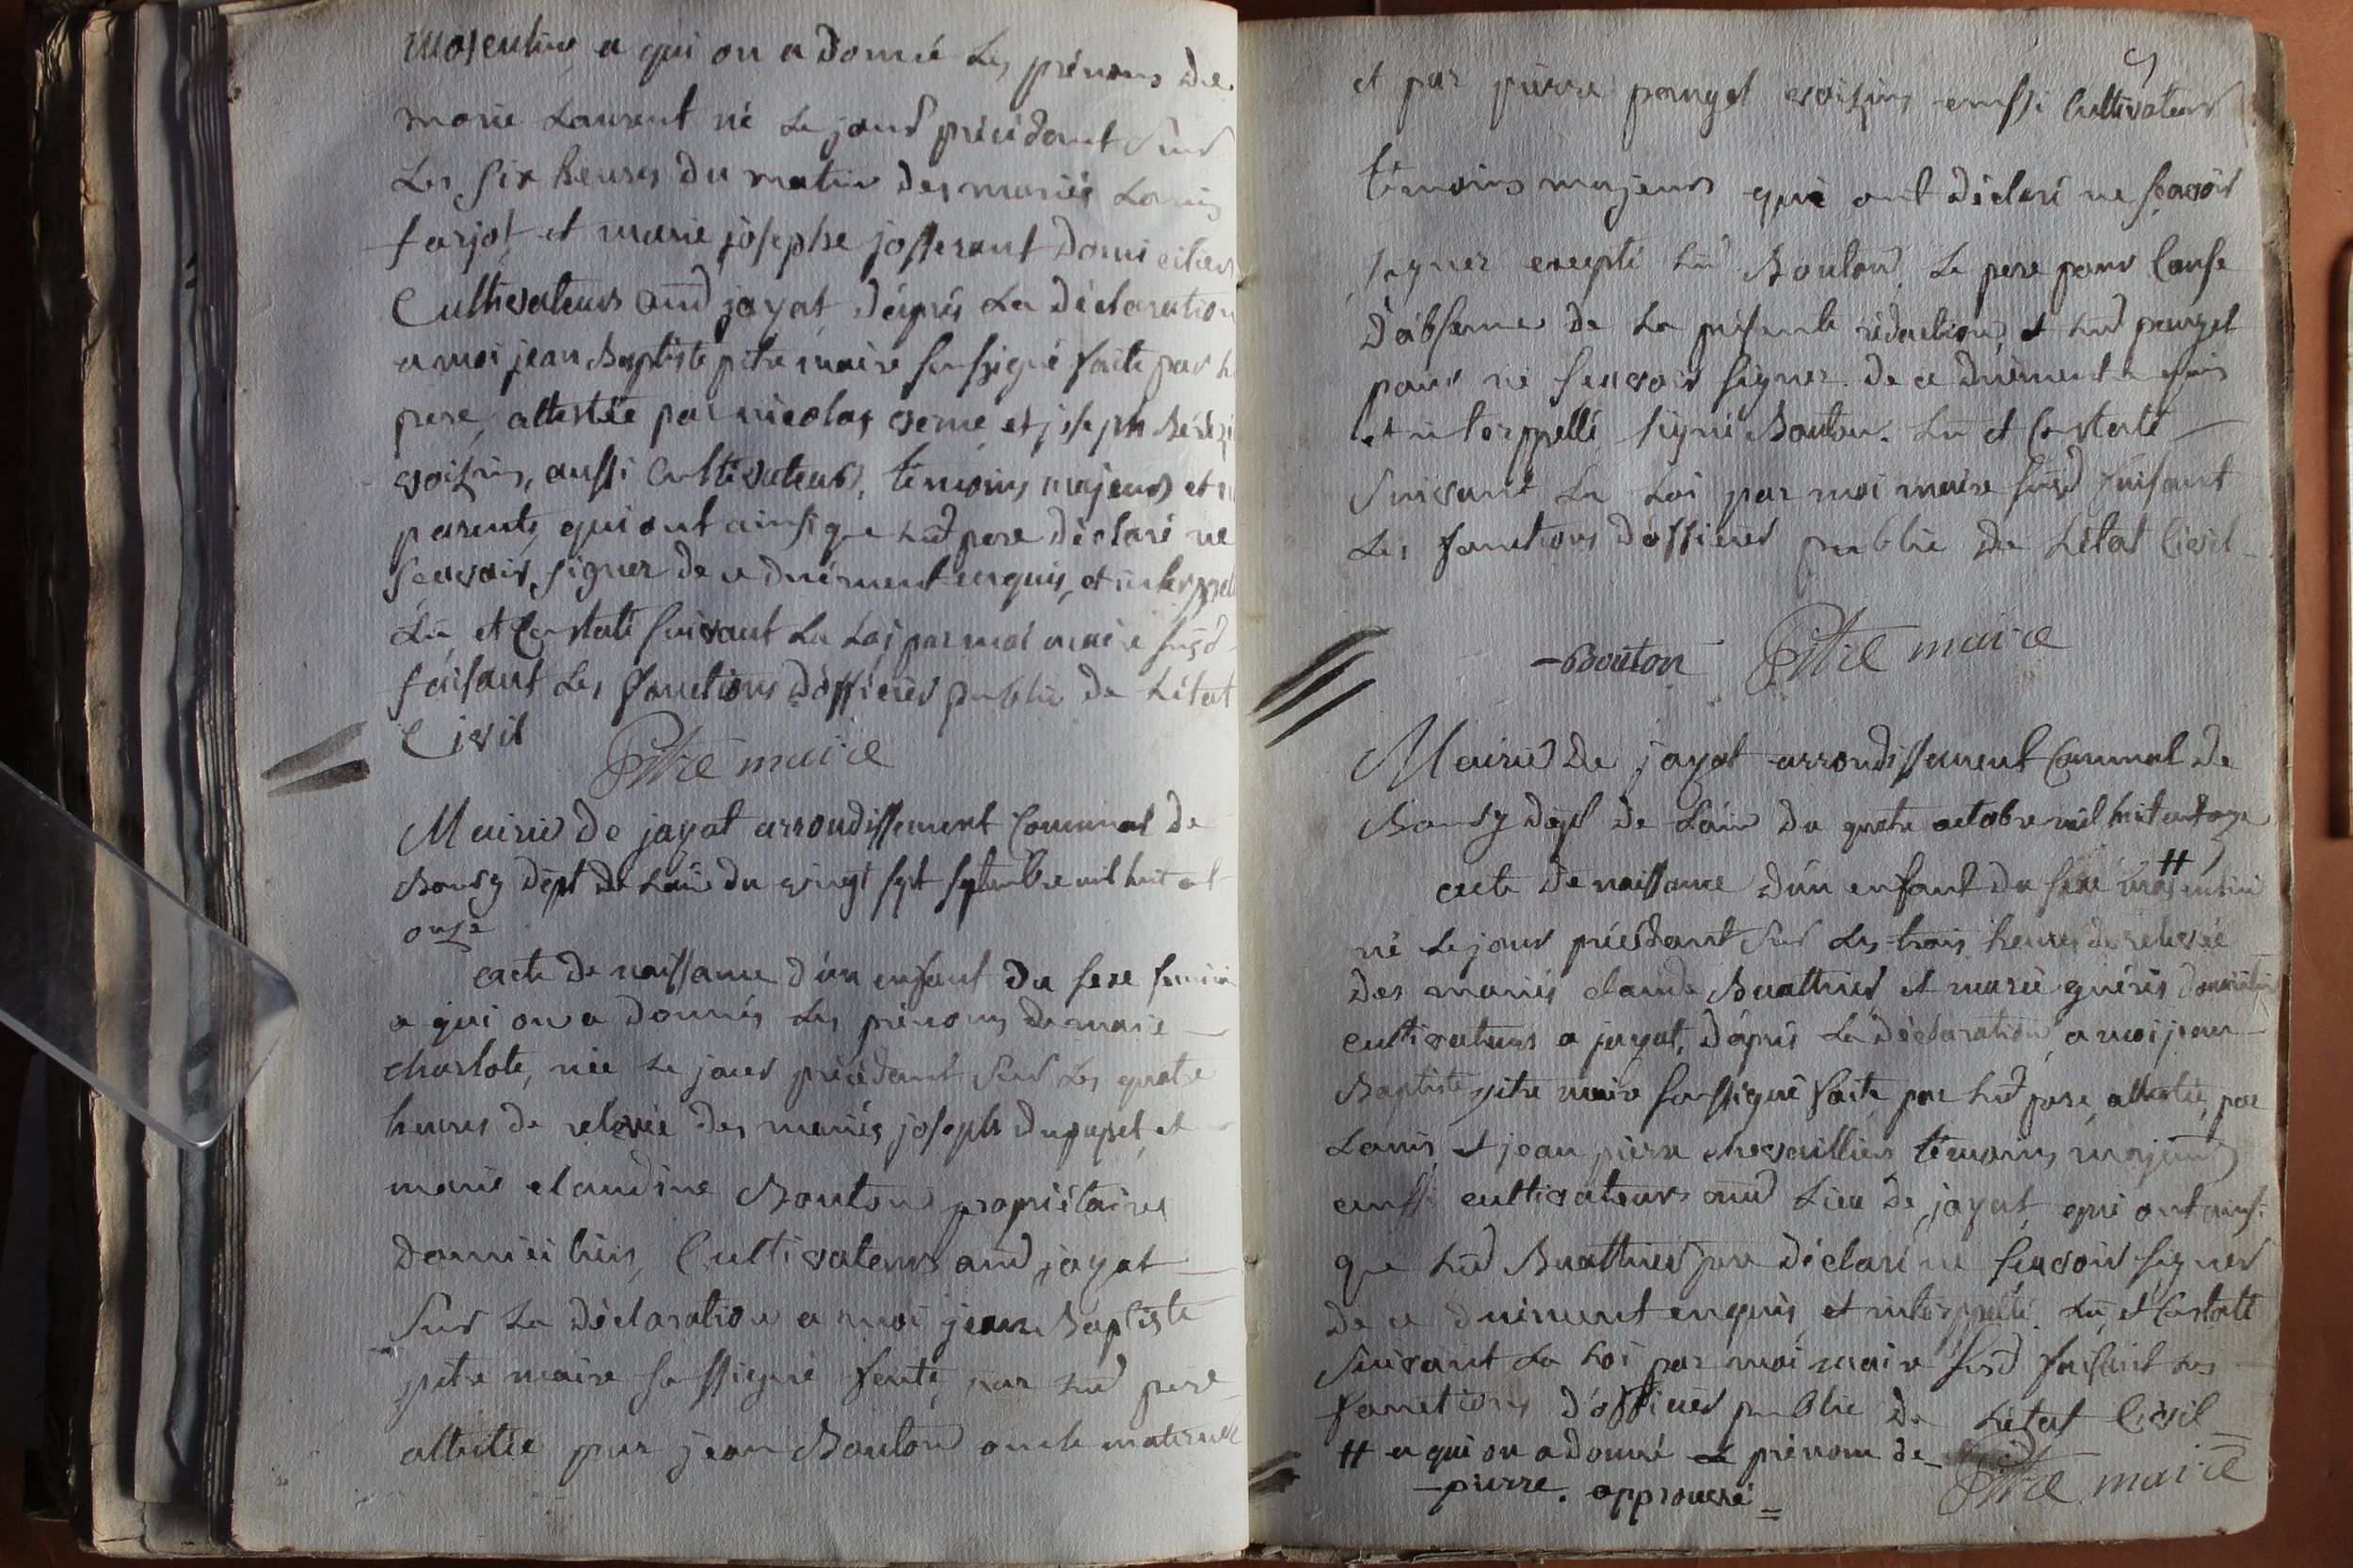 masculine a qui on a donné les prénoms de
marie Laurent né le jour précédant sur
les six heures du matin des mariés Louis
farjot et marie josephe josserant domiciliés
Cultivateurs aud jayat, d'après la déclaration
a moi jean Baptiste pitre maire soussigné faite par
pere, attestée par nicolas verne et joseph
voisins, aussi Cultivateurs, témoins majeurs et
parents, qui ont ainsi que lud pere déclaré ne
scavoir signer de ce duement enquis, et interppell
Lu, et Constaté suivant la Loi par moi maire susd
faisant les fonctions d'officier public de L'état
Civil
Pitre maire
Mairie de jayat arrondissement Communal de
Bourg dépt de Lain du vingt sept septembre mil huit cent
onze
acte de naissance d'un enfant du sexe feminin
a qui on a donnés les prénoms de marie
charlote, née le jour précédant sur les quatre
heures de relevée des mariés joseph dupupet, et
marie claudine Bouton propriétaires
domiciliés, Cultivateurs aud jayat
Sur la déclaration a moi jean Baptiste
pitre maire soussigné faite, par lud pere
attestée par jean Bouton oncle maternel
5
et par pierre panget voisins aussi Cultivateurs
témoins majeurs qui ont déclaré ne scavoir
signer excepté lud Bouton, le pere pour Cause
d'absence de la présente rédaction, et lud panget
pour ne scavoir signer de ce duement enquis
et interppellé signé Bouton. Lu et Constaté
Suivant la Loi par moi maire susd faisant
les fonctions d'officier public de L'état Civil
Bouton Pitre maire
Mairie de jayat arrondissement Communal de
Bourg dépt de Lain du quatre octobre mil huit cent onze
acte de naissance d'un enfant du sexe masculin #
né le jour précédant sur les trois heures de relevée
des mariés claude Buathier et marie guéris domiciliés
cultivateurs a jayat, d'après la déclaration, a moi jean
Baptiste pitre maire soussigné faite, par lud pere, attestée, par
Louis, et jean pierre chevaillier témoins, majeurs
aussi cultivateurs aud Lieu de jayat, qui ont ainsi
que lud Buathier pere déclaré ne scavoir signer
de ce duement enquis, et interppellé. Lu, et Constaté
Suivant la Loi par moi maire susd faisant les
fonctions d'officier public de L'état Civil
# a qui on a donné le prénom de
pierre. approuvé =
Pitre maire